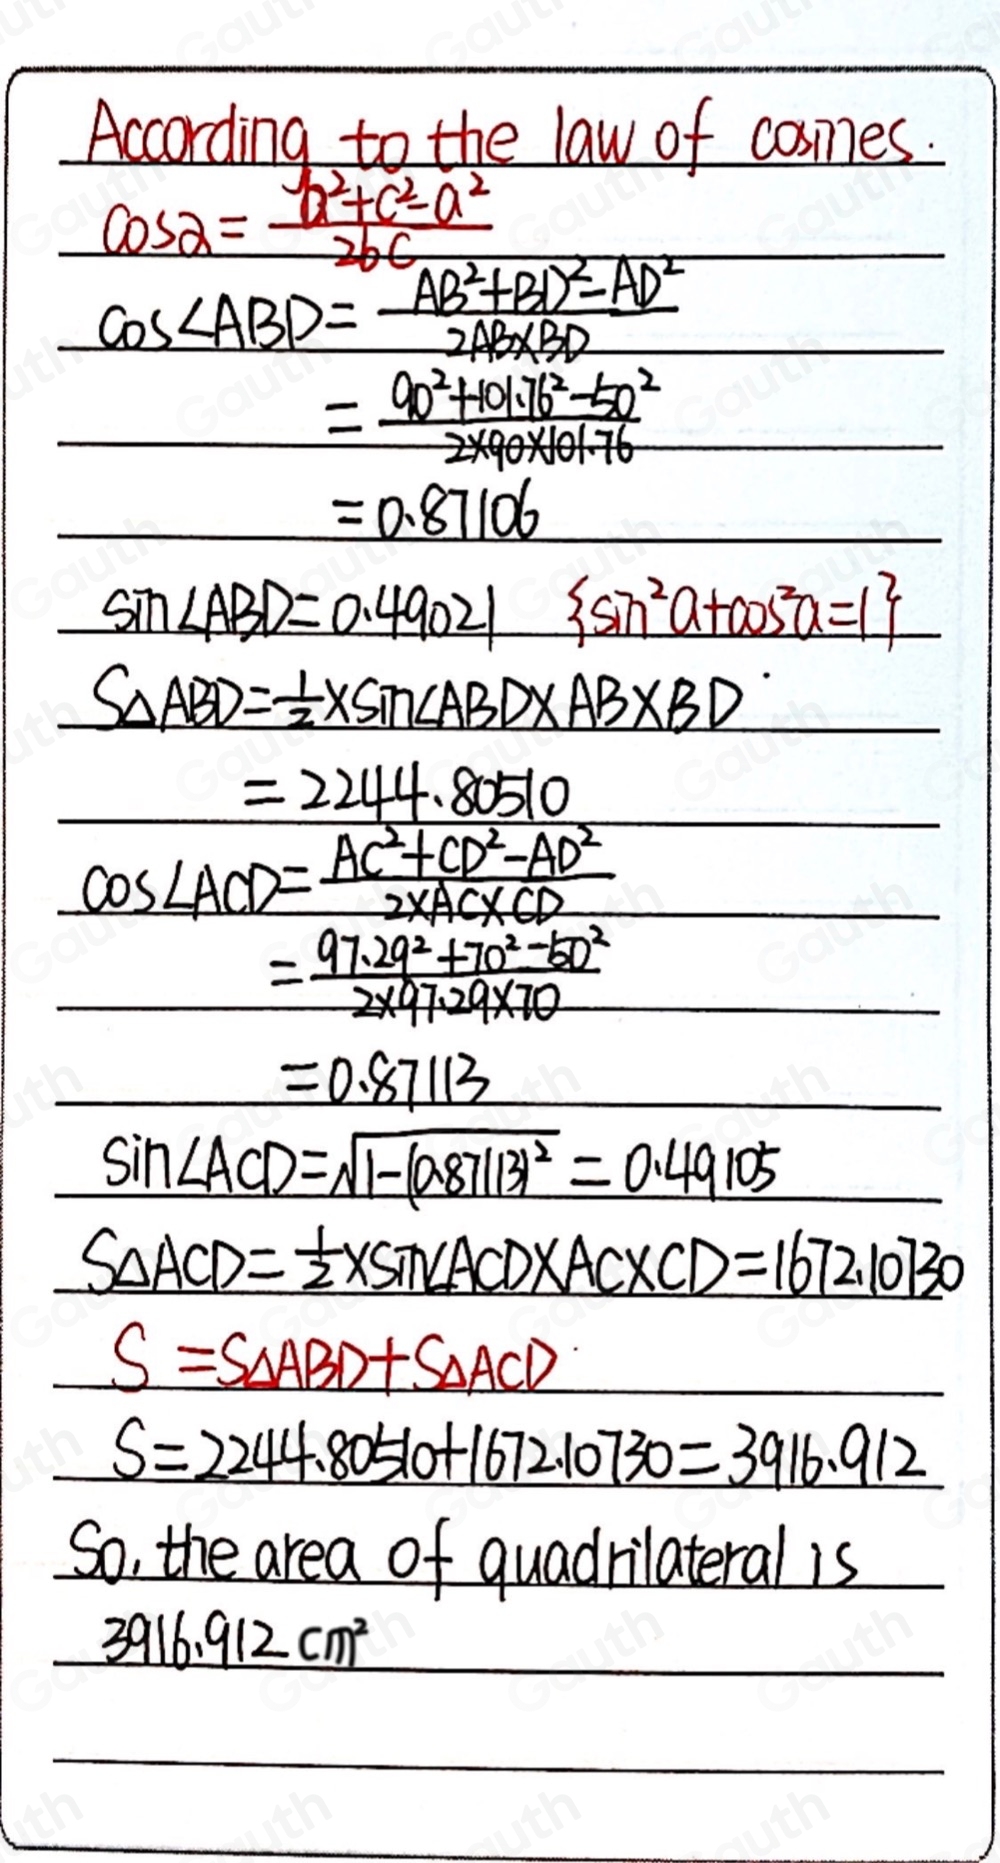 According to the law of cosines.
cosa = (b²+c²-a²)/(2bc)
cos∠ABD = (AB²+BD²-AD²)/(2AB×BD)
= (90²+101.76²-50²)/(2×90×101.76)
= 0.87106
sin∠ABD = 0.49021 {sin²a+cos²a=1}
S△ABD = 1/2×sin∠ABD×AB×BD
= 2244.80510
cos∠ACD = (AC²+CD²-AD²)/(2×AC×CD)
= (97.29²+70²-50²)/(2×97.29×70)
= 0.87113
sin∠ACD = √(1-(0.87113)²) = 0.49105
S△ACD = 1/2×sin∠ACD×AC×CD = 1672.10730
S = S△ABD+S△ACD
S = 2244.80510+1672.10730 = 3916.912
So, the area of quadrilateral is
3916.912 cm²
Gauth